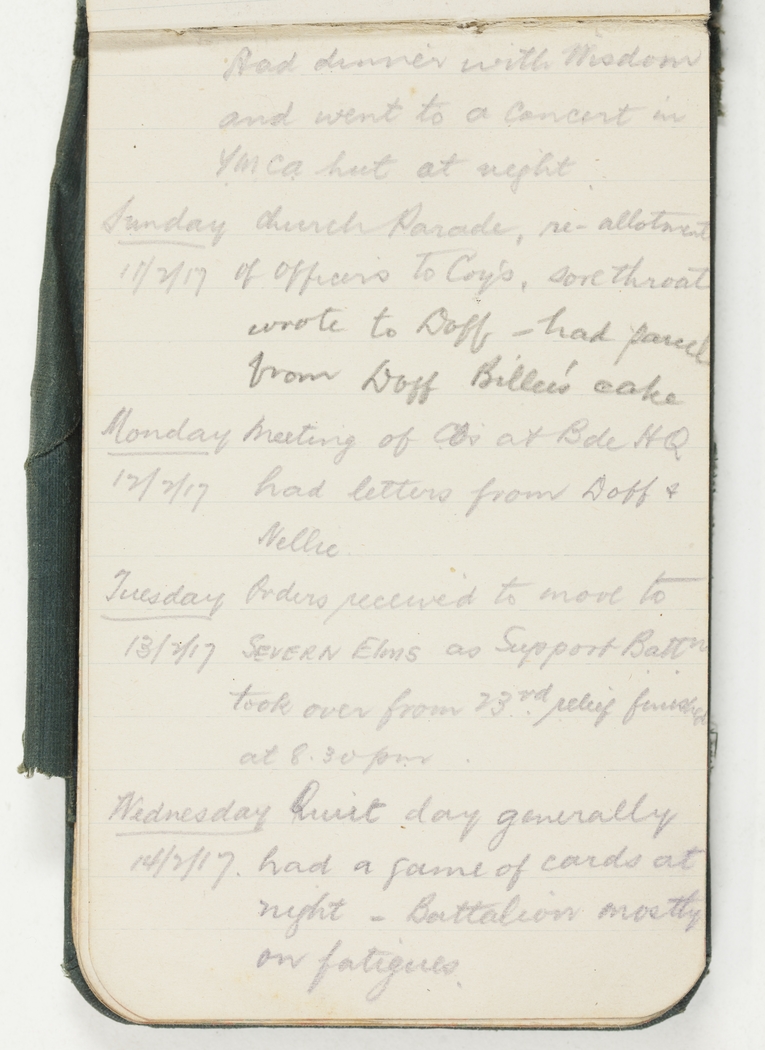 Had dinner with Wisdom
and went to a Concert in
YMCA hut at night
Sunday Church Parade, re-allotment
11/2/17 of Officers to Coy's, sore throat
wrote to Doff - had parcel
from Doff Billie's cake
Monday Meeting of COs at Bde HQ
12/2/17 had letters from Doff &
Nellie.
Tuesday Orders received to move to
13/2/17 SEVERN Elms as Support Battn
took over from 23rd relief finished
at 8.30 pm.
Wednesday Quiet day generally
14/2/17. had a game of cards at
night - Battalion mostly
on fatigues.